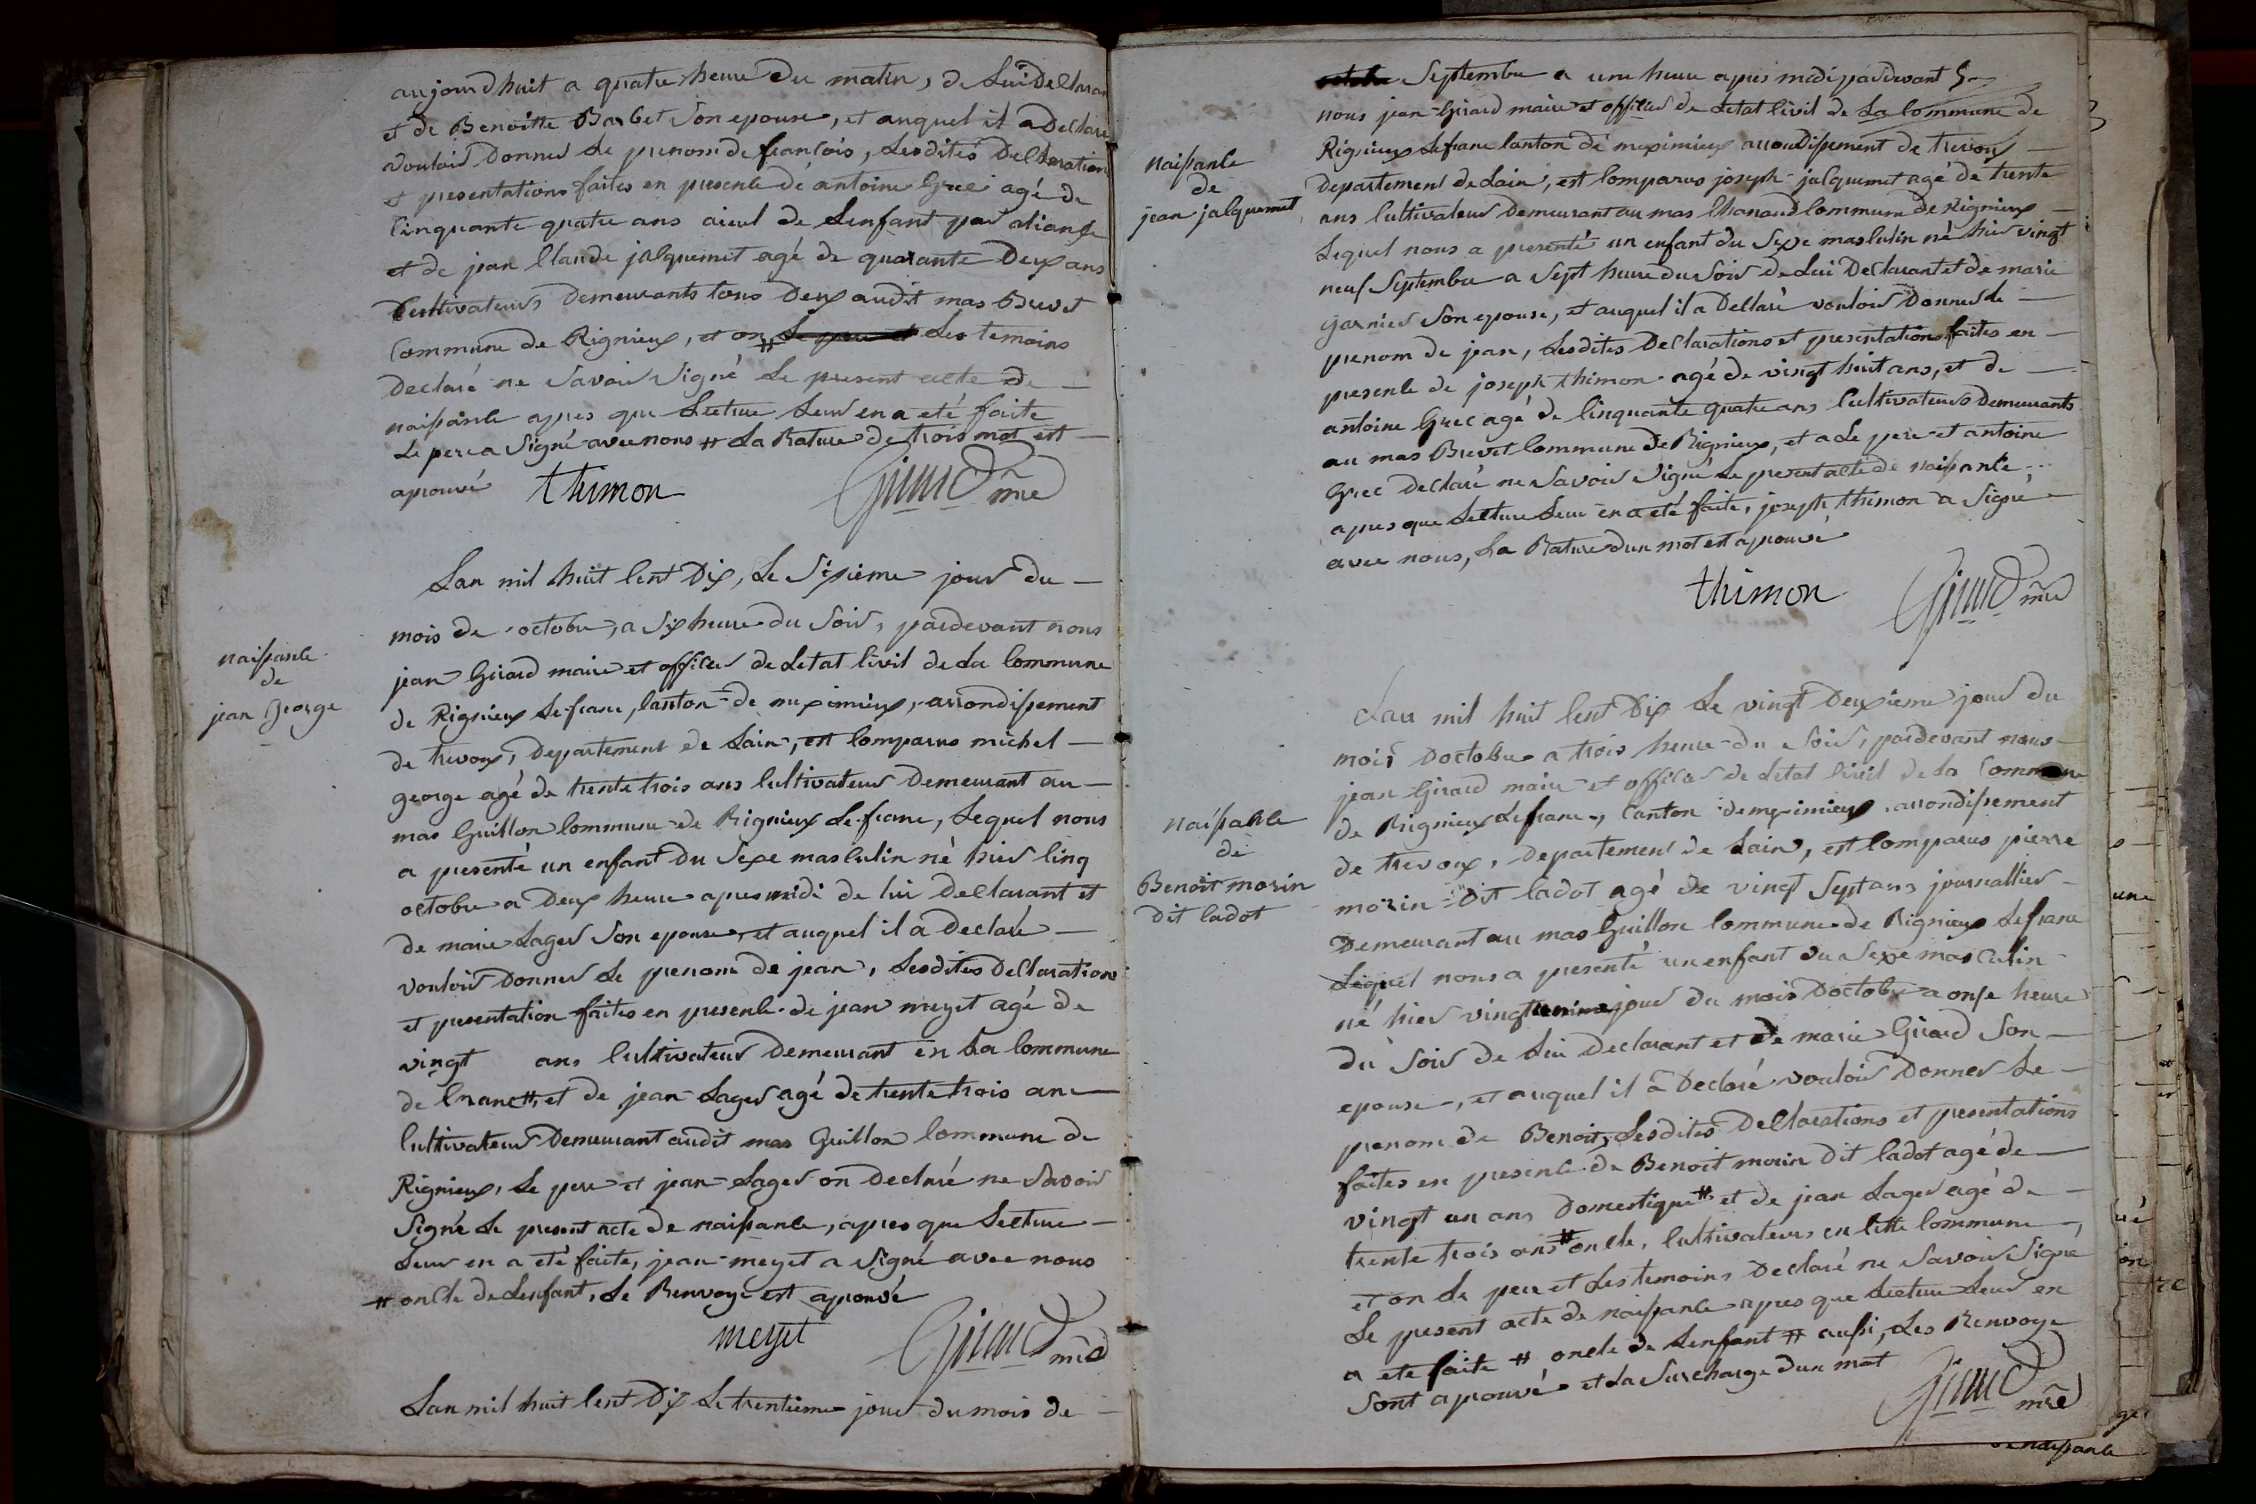 aujourdhuit a quatre heure du matin, de lui Declarant
et de Benoitte Barbet Son epouse, et auquel il a Declaré
vouloir Donner le prenom de francois, lesdites Declaration
et presentations faites en presence de antoine Grec agé de
Cinquante quatre ans aieul de Lenfant par alianse
et de jean Claude jalquemet agé de quarante Deux ans
Cultivateurs Demeurants tous Deux audit mas Buvet
Commune de Rignieux, et on # les temoins
Declaré ne Savoir Signé Le present acte de
naissance apres que Lecture Leur en a eté faite
Le pere a Signé avec nous # La Rature de trois mot est
aprouvé thimon Girard mre
naissance
de
jean George
Lan mil huit Cent Dix, Le Sixieme jour du
mois de octobre, a Six heure du Soir, pardevant nous
jean Girard maire et officier de Letat Civil de La Commune
de Rignieux Le franc, Canton de meximieux, arrondissement
de trevoux, Departement de Lain, est Comparus michel
george agé de trente trois ans Cultivateur Demeurant au
mas Guillon Commune de Rignieux Le franc, Lequel nous
a presenté un enfant Du Sexe masculin né hier Cinq
octobre a Deux heure apres midi de lui Declarant et
de marie Lager Son epouse, et auquel il a Declaré
vouloir Donner Le prenom de jean, Lesdites Declaration
et presentation faites en presence de jean meyet agé de
vingt ans Cultivateur Demeurant en La Commune
de Crans #, et de jean Lager agé de trente trois ans
Cultivateur Demeurant audit mas Guillon Commune de
Rignieux, Le pere et jean Lager on Declaré ne Savoir
Signé Le present acte de naissance, apres que Lecture
Leur en a eté faite, jean meyet a Signé avec nous
# oncle de Lenfant, Le Renvoye est aprouvé
meyet Girard mre
Lan mil huit Cent Dix Le trentieme jour du mois de
naissance
de
jean jalquemet
Septembre a une heure apres midi pardevant
nous jean Girard maire et officier de Letat Civil de La Commune de
Rignieux Lefranc Canton de meximieux arrondissement de trevoux
Departement de Lain, est Comparus joseph jalquemet agé de trente
ans Cultivateur Demeurant au mas Chanaud Commune de Rignieux
Lequel nous a presenté un enfant du Sexe masculin né hier vingt
neuf Septembre a Sept heure du Soir de Lui Declarant et de marie
garnier Son epouse, et auquel il a Declaré vouloir Donner Le
prenom de jean, Lesdites Declarations et presentations faites en
presence de joseph thimon agé de vingt huit ans, et de
antoine Grec agé de Cinquante quatre ans Cultivateurs Demeurants
au mas Buvet Commune de Rignieux, et a Le pere et antoine
Grec Declaré ne Savoir Signé Le present acte de naissance
apres que Lecture Leur en a eté faite, joseph thimon a Signé
avec nous, La Rature dun mot est aprouvé
thimon Girard mre
naissance
de
Benoit morin
Dit Cadot
Lan mil huit Cent Dix Le vingt Deuxieme jour du
mois Doctobre a trois heure du Soir, pardevant nous
jean Girard maire et officier de Letat Civil de La Commune
de Rignieux Lefranc, Canton de meximieux arrondissement
de trevoux, Departement de Lain, est Comparus pierre
morin Dit Cadot agé de vingt Sept ans journallier
Demeurant au mas Guillon Commune de Rignieux Lefranc
Lequel nous a presenté un enfant du Sexe masculin
né hier vingt jour du mois Doctobre a onse heure
du Soir de Lui Declarant et de marie Girard Son
epouse, et auquel il a Declaré vouloir Donner Le
prenom de Benoit, Lesdites Declarations et presentations
faites en presence de Benoit morin Dit Cadot agé de
vingt un ans Domestique # et de jean Lager agé de
trente trois ans # oncle, Cultivateurs en Cette Commune,
et on Le pere et Les temoins Declaré ne Savoir Signé
Le present acte de naissance apres que Lecture Leur en
a eté faite # oncle de Lenfant # aussi, Les Renvoye
Sont aprouvé et La Surcharge dun mot
Girard mre
une
de naissance